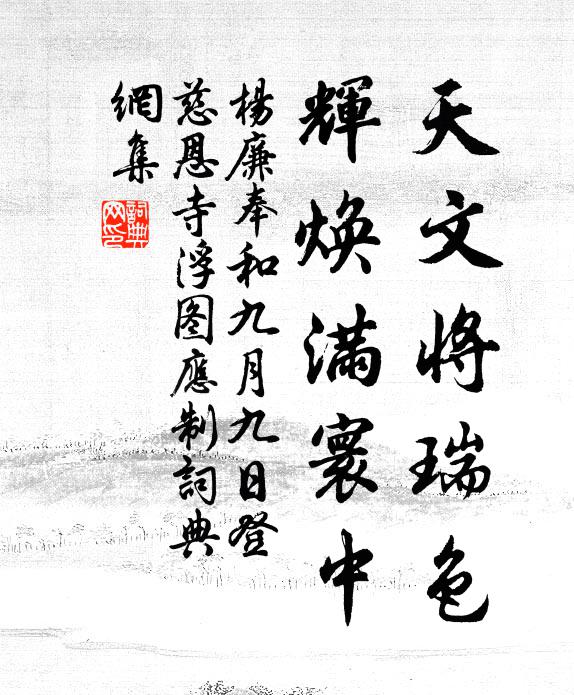 天文將瑞色
輝煥滿寰中
楊廉奉和九月九日登
慈恩寺浮图應制詞典
網集
詞典
网印